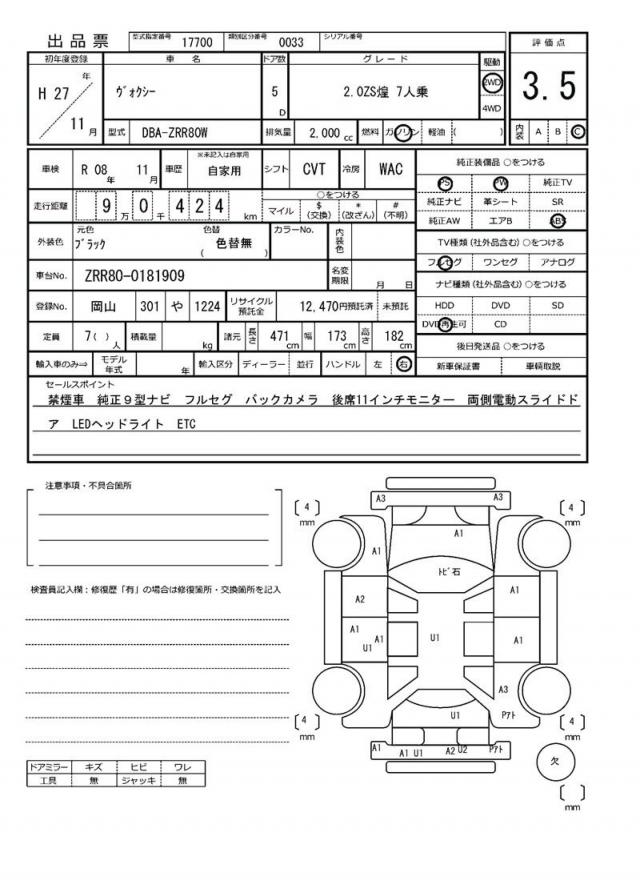 出品票 型式指定番号 17700 類別区分番号 0033 シリアル番号
初年度登録 車 名 ドア数 グレード 駆動 評価点
H 27 年 11 月
ヴォクシー 5 D 2.0ZS煌 7人乗 2WD 4WD 3.5
型式 DBA-ZRR80W 排気量 2,000 cc 燃料 ガソリン 軽油 ( ) 内装 A B C
車検 R 08 年 11 月 車歴 ※未記入は自家用 自家用 シフト CVT 冷房 WAC 純正装備品 ○をつける
PS PW 純正TV
走行距離 9 万 0 千 4 2 4 km ○をつける
マイル $ (交換) * (改ざん) # (不明)
純正ナビ 革シート SR
純正AW エアB ABS
外装色 元色 ブラック 色替 ( 色替無 ) カラーNo. 内装色
TV種類 (社外品含む) ○をつける
フルセグ ワンセグ アナログ
車台No. ZRR80-0181909 名変期限 月 日
ナビ種類 (社外品含む) ○をつける
登録No. 岡山 301 や 1224 リサイクル預託金 12,470円預託済 未預託
HDD DVD SD
DVD再生可 CD
定員 7( ) 人 積載量 kg 諸元 長さ 471 cm 幅 173 cm 高さ 182 cm
後日発送品 ○をつける
輸入車のみ⇒ モデル年式 年 輸入区分 ディーラー 並行 ハンドル 左 右
新車保証書 車輌取説
セールスポイント
禁煙車 純正9型ナビ フルセグ バックカメラ 後席11インチモニター 両側電動スライドド
ア LEDヘッドライト ETC
注意事項・不具合箇所
検査員記入欄:修復歴「有」の場合は修復箇所・交換箇所を記入
ドアミラー キズ ヒビ ワレ
工具 無 ジャッキ 無
A3 A3
4 mm 4 mm
A1
A1
トビ石
A2 A1
A1 A1 U1 U1 A1
A3
U1 Pアト
4 mm 4 mm
A1 A1 U1 A2 U2 Pアト
欠
mm